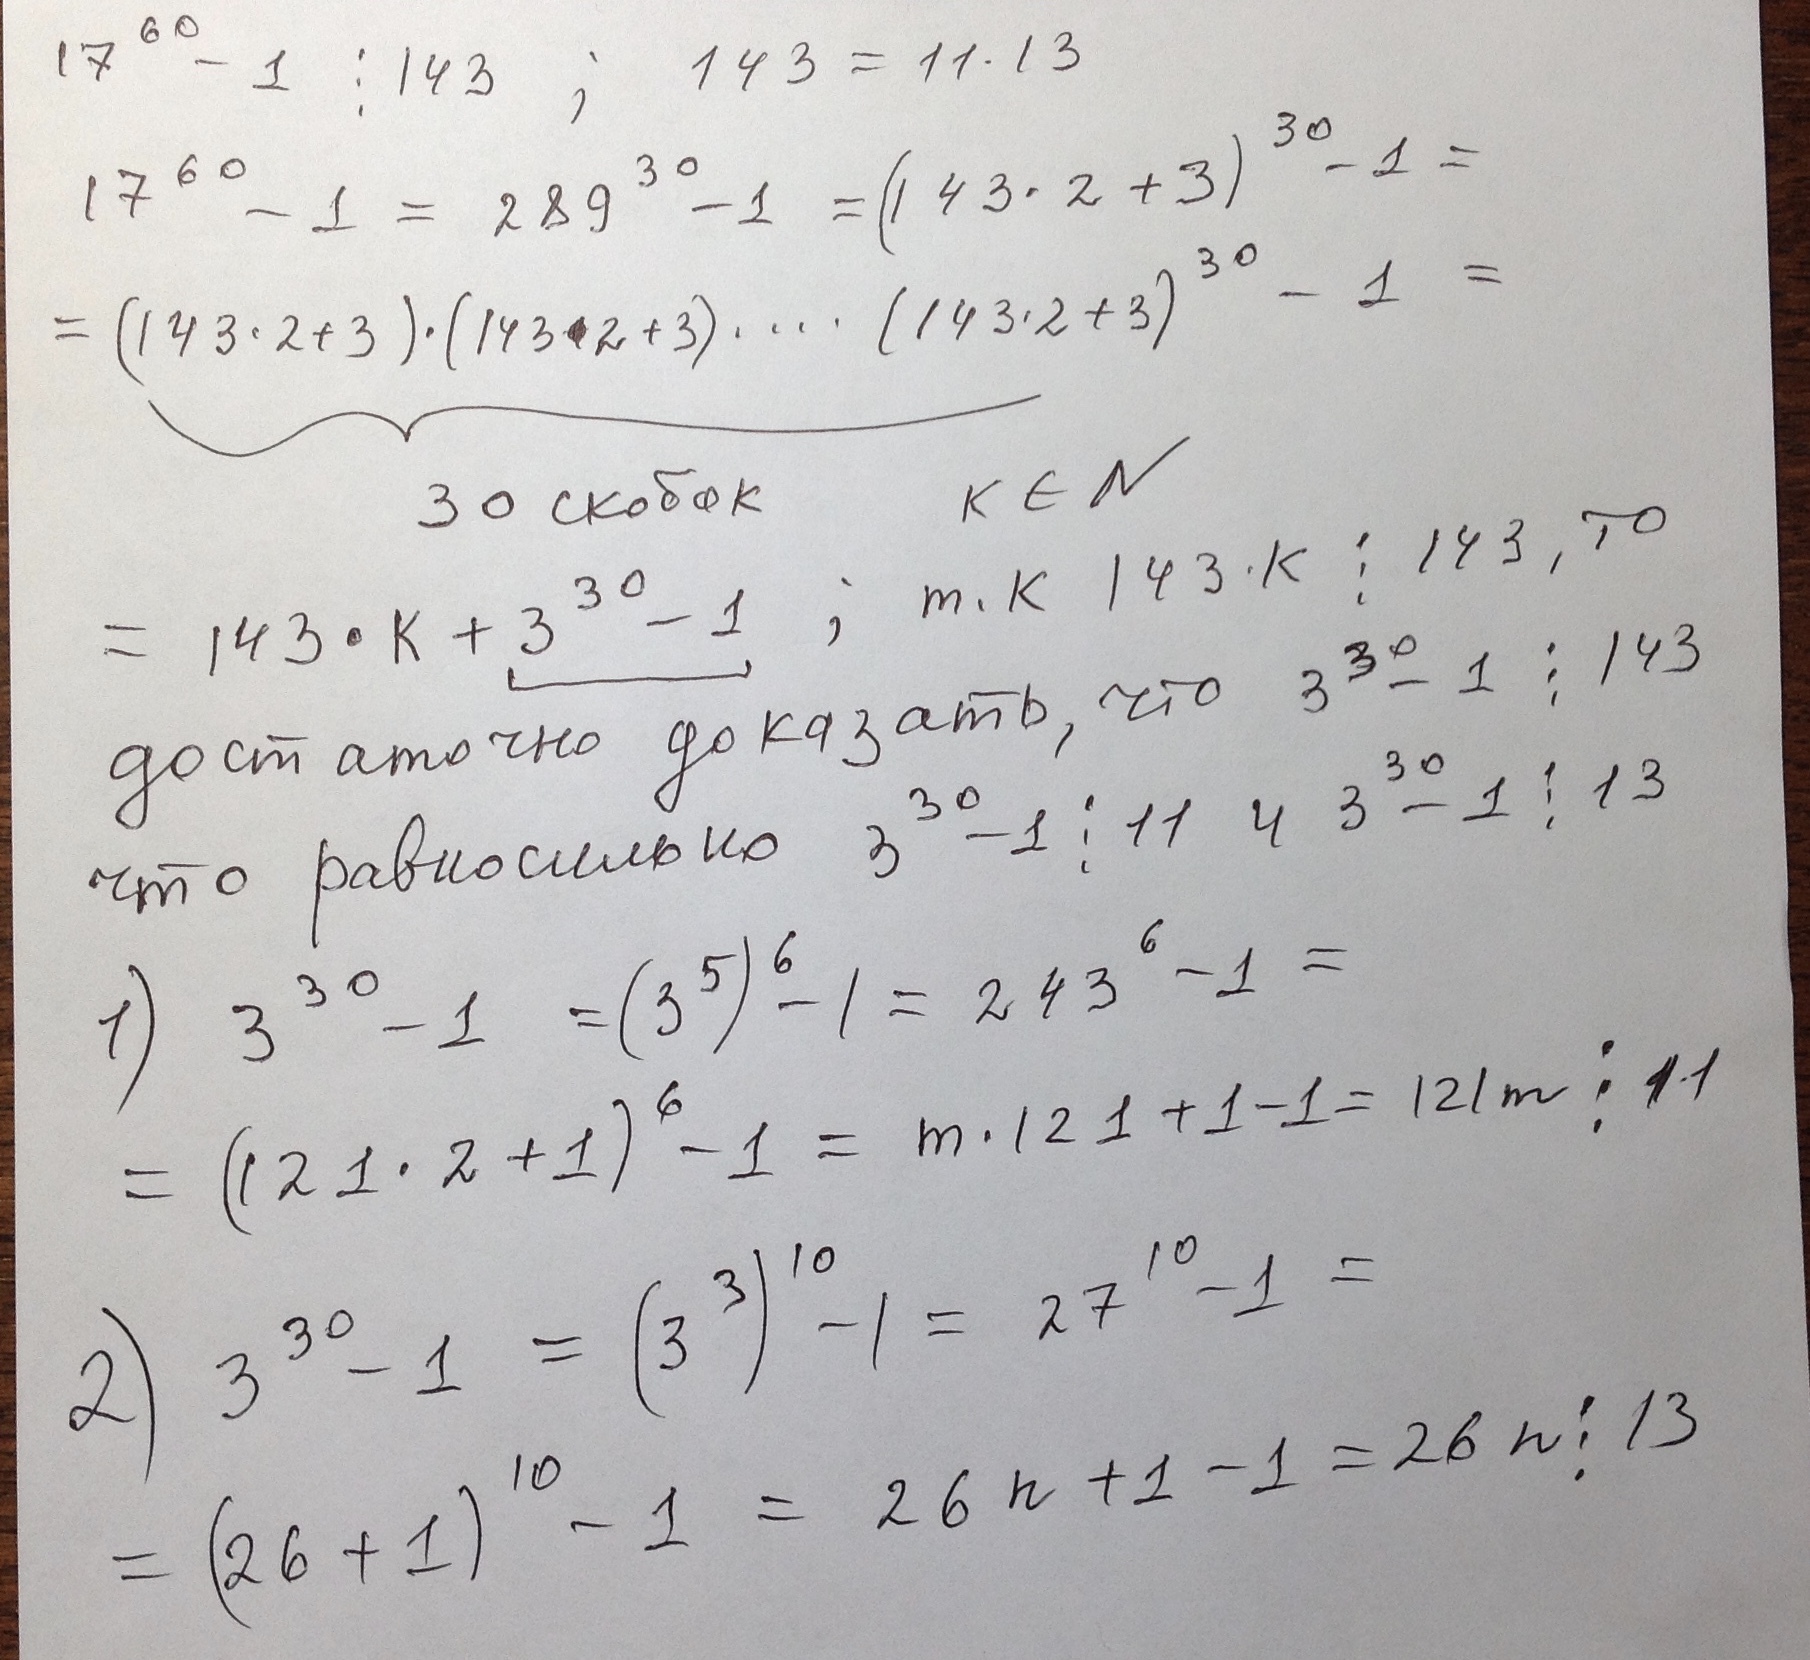 17⁶⁰ - 1 ⋮ 143 ; 143 = 11·13
17⁶⁰ - 1 = 289³⁰ - 1 = (143·2+3)³⁰ - 1 =
= (143·2+3)·(143·2+3)·...·(143·2+3)³⁰ - 1 =
30 скобок K ∈ N
= 143·K + 3³⁰ - 1 ; т.к 143·K ⋮ 143, то
достаточно доказать, что 3³⁰ - 1 ⋮ 143
что равносильно 3³⁰ - 1 ⋮ 11 и 3³⁰ - 1 ⋮ 13
1) 3³⁰ - 1 = (3⁵)⁶ - 1 = 243⁶ - 1 =
= (121·2+1)⁶ - 1 = m·121+1-1 = 121m ⋮ 11
2) 3³⁰ - 1 = (3³)¹⁰ - 1 = 27¹⁰ - 1 =
= (26+1)¹⁰ - 1 = 26n+1-1 = 26n ⋮ 13